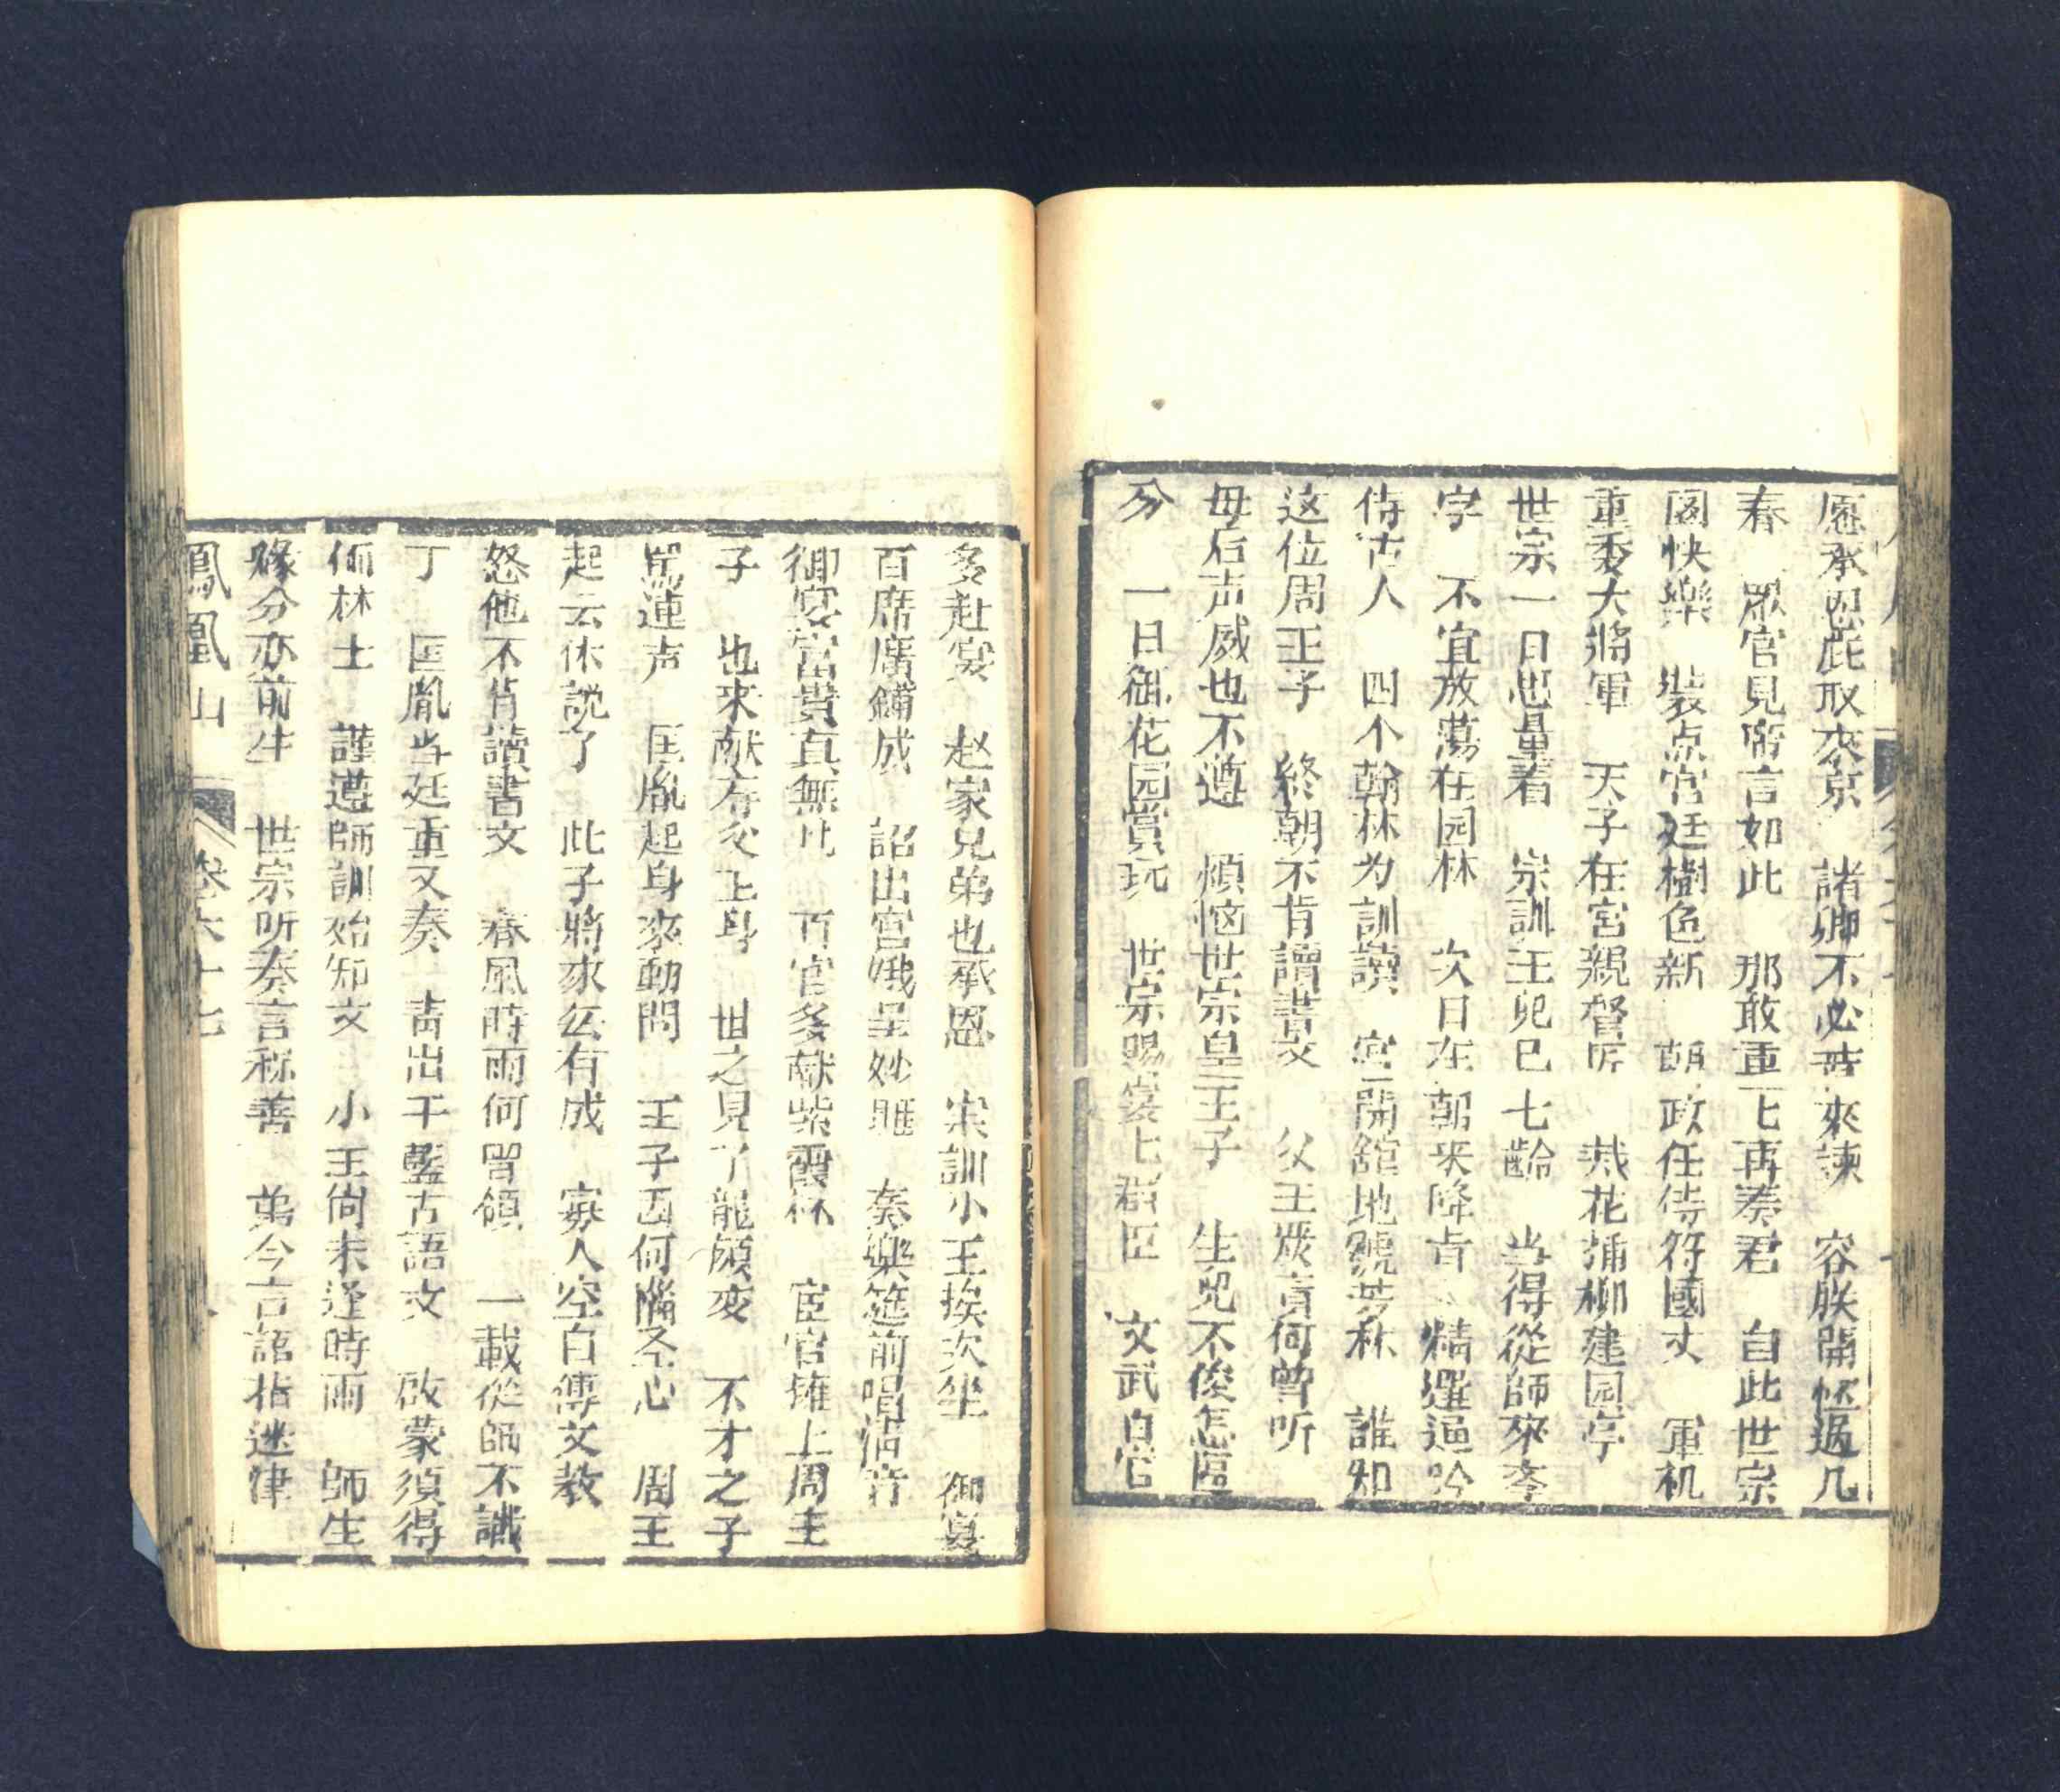 愿承恩庇取來京 諸卿不必苦來諫 容朕開怀過几
春 眾官見駕言如此 那敢重七再奏君 自此世宗
图快樂 裝点宮廷樹色新 朝政任侍符國丈 軍机
重委大將軍 天子在宮親督匠 栽花揷柳建园亭
世宗一日思量着 宗訓王兒已七齡 当得從師來李
字 不宜放蕩在园林 次日在朝來降旨 精選逼吟
侍古人 四个翰林为訓讀 宮開舘地號芳林 誰知
这位周王子 終朝不肯讀書文 父王嚴言何曾听
母后声威也不遵 煩恼世宗皇王子 生兒不俊怎區
分 一日御花园賞玩 世宗賜宴七群臣 文武百官
多赴宴 赵家兄弟也承恩 宗訓小王挨次坐 御宴
百席廣鋪成 詔出宮娥呈妙 奏樂筵前唱清音
御宴富貴真無比 百官多献紫霞杯 宦官擁上周王
子 也來献存父上身 世之見了龍顏变 不才之子
罵連声 匡胤起身來動問 王子因何惱圣心 周王
起云休説了 此子將來公有成 寡人空自傅文教
怒他不肖讀書文 春風時雨何曾領 一載從師不識
丁 匡胤当廷重又奏 青出于藍古語文 啟蒙須得
個林士 謹遵師訓始知文 小王尚未逢時雨 師生
緣分亦前生 世宗听奏言称善 弟今言語指迷律
鳳凰山 卷六十七 八